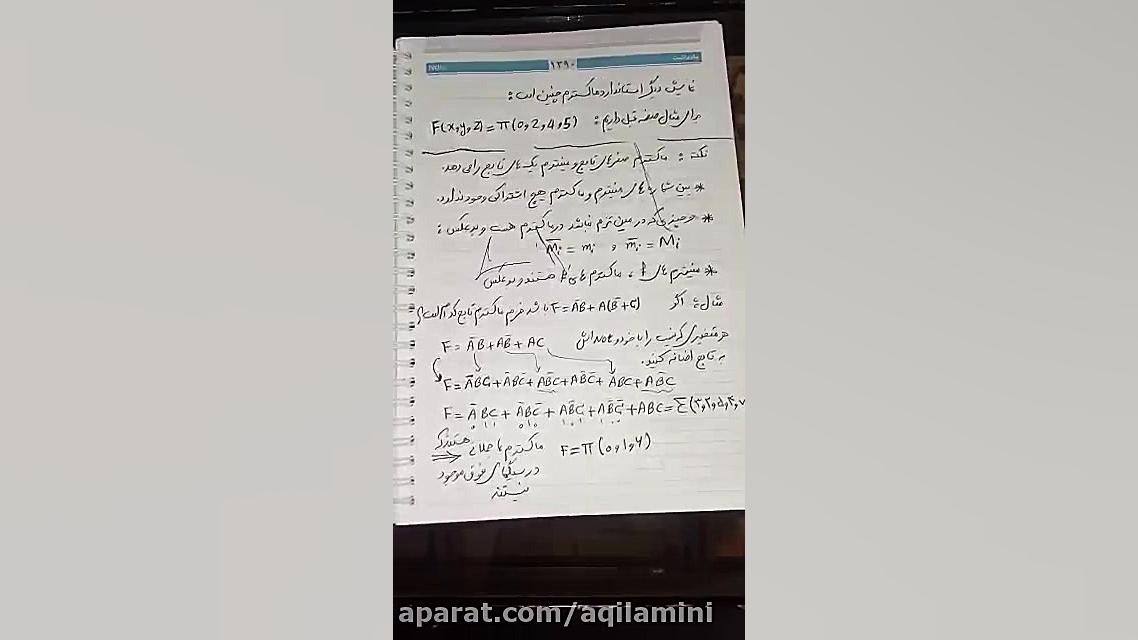 یادداشت ۱۳۹۰ Note
نمایش دیگر استاندارد ماکسترم چنین است:
برای مثال صفحه قبل داریم: F(x,y,z) = π(0,2,4,5)
نکته: ماکسترم صفرهای تابع و مینترم یک های تابع را می دهد.
* بین شماره های مینترم و ماکسترم هیچ اشتراکی وجود ندارد.
* هر چیزی که در مین ترم نباشد در ماکسترم هست و برعکس:
M̄i = mi و m̄i = Mi
* مینترم های F، ماکسترم های F̄ هستند و برعکس
مثال: اگر F = ĀB + A(B̄+C) باشد فرم ماکسترم تابع کدام است؟
F = ĀB + AB̄ + AC
هر متغیری که نیست را با خود و Not اش
به تابع اضافه کنید.
F = ĀBC + ĀBC̄ + AB̄C + AB̄C̄ + ABC + AB̄C
F = ĀBC + ĀBC̄ + AB̄C + AB̄C̄ + ABC = Σ(۳,۲,۵,۴,۷
011 010 101 100
F = π(0,1,6)
ماکسترم ها جملاتی هستند که
در سیگمای فوق موجود
نیستند
aparat.com/aqilamini